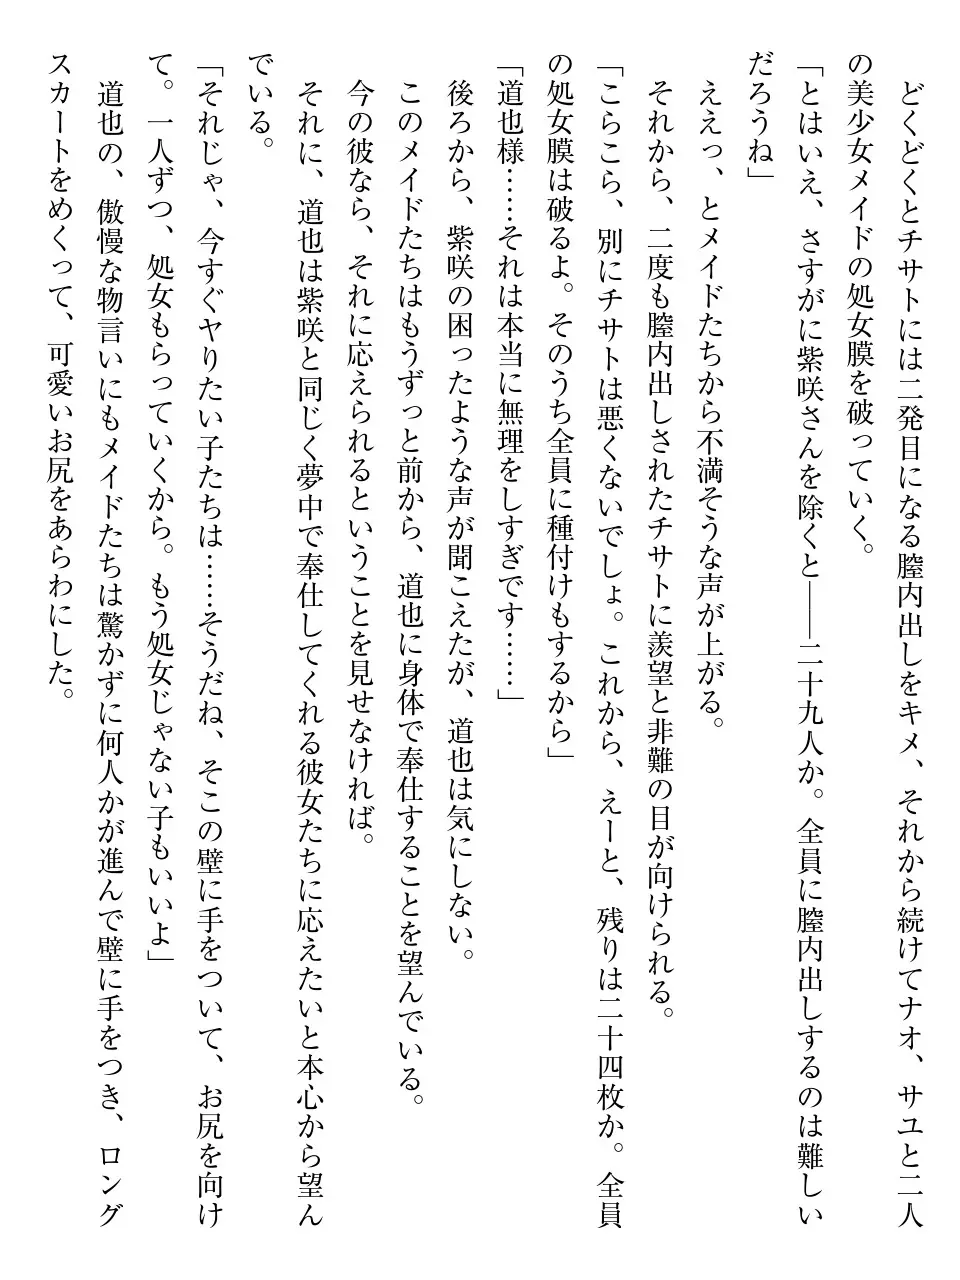 どくどくとチサトには二発目になる膣内出しをキメ、それから続けてナオ、サユと二人
の美少女メイドの処女膜を破っていく。
「とはいえ、さすがに紫咲さんを除くと――二十九人か。全員に膣内出しするのは難しい
だろうね」
　ええっ、とメイドたちから不満そうな声が上がる。
　それから、二度も膣内出しされたチサトに羨望と非難の目が向けられる。
「こらこら、別にチサトは悪くないでしょ。これから、えーと、残りは二十四枚か。全員
の処女膜は破るよ。そのうち全員に種付けもするから」
「道也様……それは本当に無理をしすぎです……」
　後ろから、紫咲の困ったような声が聞こえたが、道也は気にしない。
　このメイドたちはもうずっと前から、道也に身体で奉仕することを望んでいる。
　今の彼なら、それに応えられるということを見せなければ。
　それに、道也は紫咲と同じく夢中で奉仕してくれる彼女たちに応えたいと本心から望ん
でいる。
「それじゃ、今すぐヤりたい子たちは……そうだね、そこの壁に手をついて、お尻を向け
て。一人ずつ、処女もらっていくから。もう処女じゃない子もいいよ」
　道也の、傲慢な物言いにもメイドたちは驚かずに何人かが進んで壁に手をつき、ロング
スカートをめくって、可愛いお尻をあらわにした。